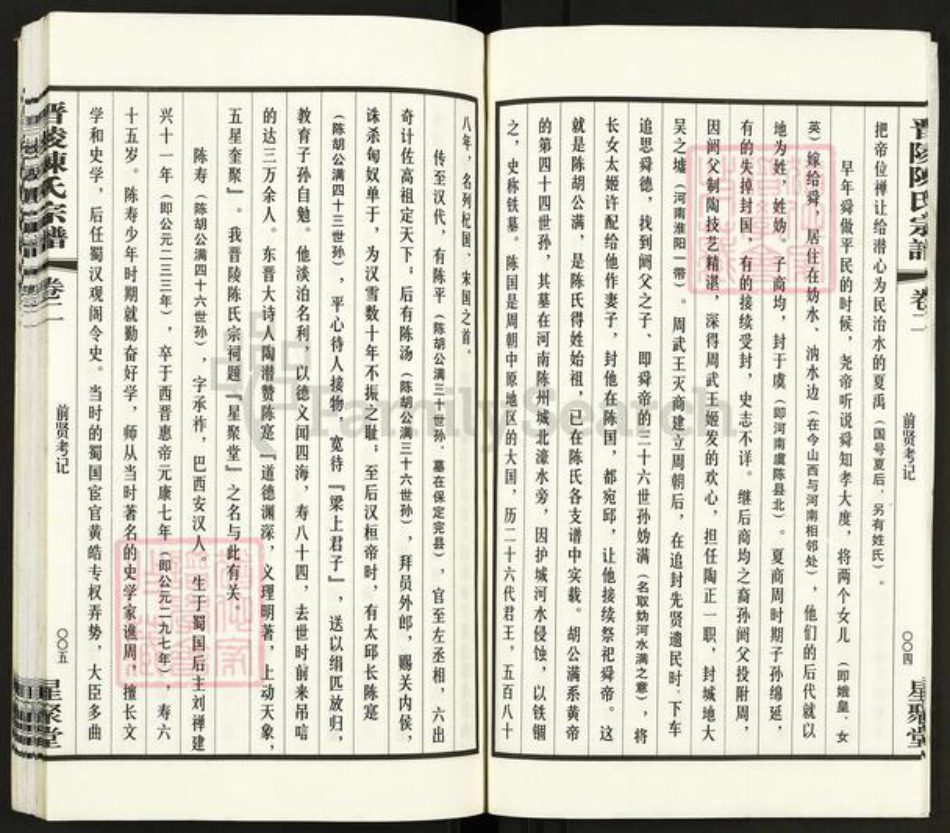 晋陵陈氏宗谱 卷二
前贤考记
〇〇四
星聚堂
把帝位禅让给潜心为民治水的夏禹（国号夏后，另有姓氏）。
早年舜做平民的时候，尧帝听说舜知孝大度，将两个女儿（即娥皇、女
英）嫁给舜，居住在妫水、汭水边（在今山西与河南相邻处），他们的后代就以
地为姓，姓妫。子商均，封于虞（即河南虞陈县北）。夏商周时期子孙绵延，
有的失掉封国，有的接续受封，史志不详。继后商均之裔孙阏父投附周，
因阏父制陶技艺精湛，深得周武王姬发的欢心，担任陶正一职，封城地大
吴之墟（河南淮阳一带）。周武王灭商建立周朝后，在追封先贤遗民时，下车
追思舜德，找到阏父之子、即舜帝的三十六世孙妫满（名取妫河水满之意），将
长女太姬许配给他作妻子，封他在陈国，都宛邱，让他接续祭祀舜帝。这
就是陈胡公满，是陈氏得姓始祖，已在陈氏各支谱中实载。胡公满系黄帝
的第四十四世孙，其墓在河南陈州城北濠水旁，因护城河水侵蚀，以铁锢
之，史称铁墓。陈国是周朝中原地区的大国，历二十六代君王，五百八十
八年，名列杞国、宋国之首。
传至汉代，有陈平（陈胡公满三十世孙，墓在保定完县），官至左丞相，六出
奇计佐高祖定天下；后有陈汤（陈胡公满三十六世孙），拜员外郎，赐关内侯，
诛杀匈奴单于，为汉雪数十年不振之耻；至后汉桓帝时，有太邱长陈寔
（陈胡公满四十三世孙），平心待人接物，宽待『梁上君子』，送以绢匹放归，
教育子孙自勉。他淡泊名利，以德义闻四海，寿八十四，去世时前来吊唁
的达三万余人。东晋大诗人陶潜赞陈寔『道德渊深，义理明著，上动天象，
五星奎聚』。我晋陵陈氏宗祠题『星聚堂』之名与此有关。
陈寿（陈胡公满四十六世孙），字承祚，巴西安汉人。生于蜀国后主刘禅建
兴十一年（即公元二三三年），卒于西晋惠帝元康七年（即公元二九七年），寿六
十五岁。陈寿少年时期就勤奋好学，师从当时著名的史学家谯周，擅长文
学和史学，后任蜀汉观阁令史。当时的蜀国宦官黄皓专权弄势，大臣多曲
晋陵陈氏宗谱 卷二
前贤考记
〇〇五
星聚堂
FamilySearch